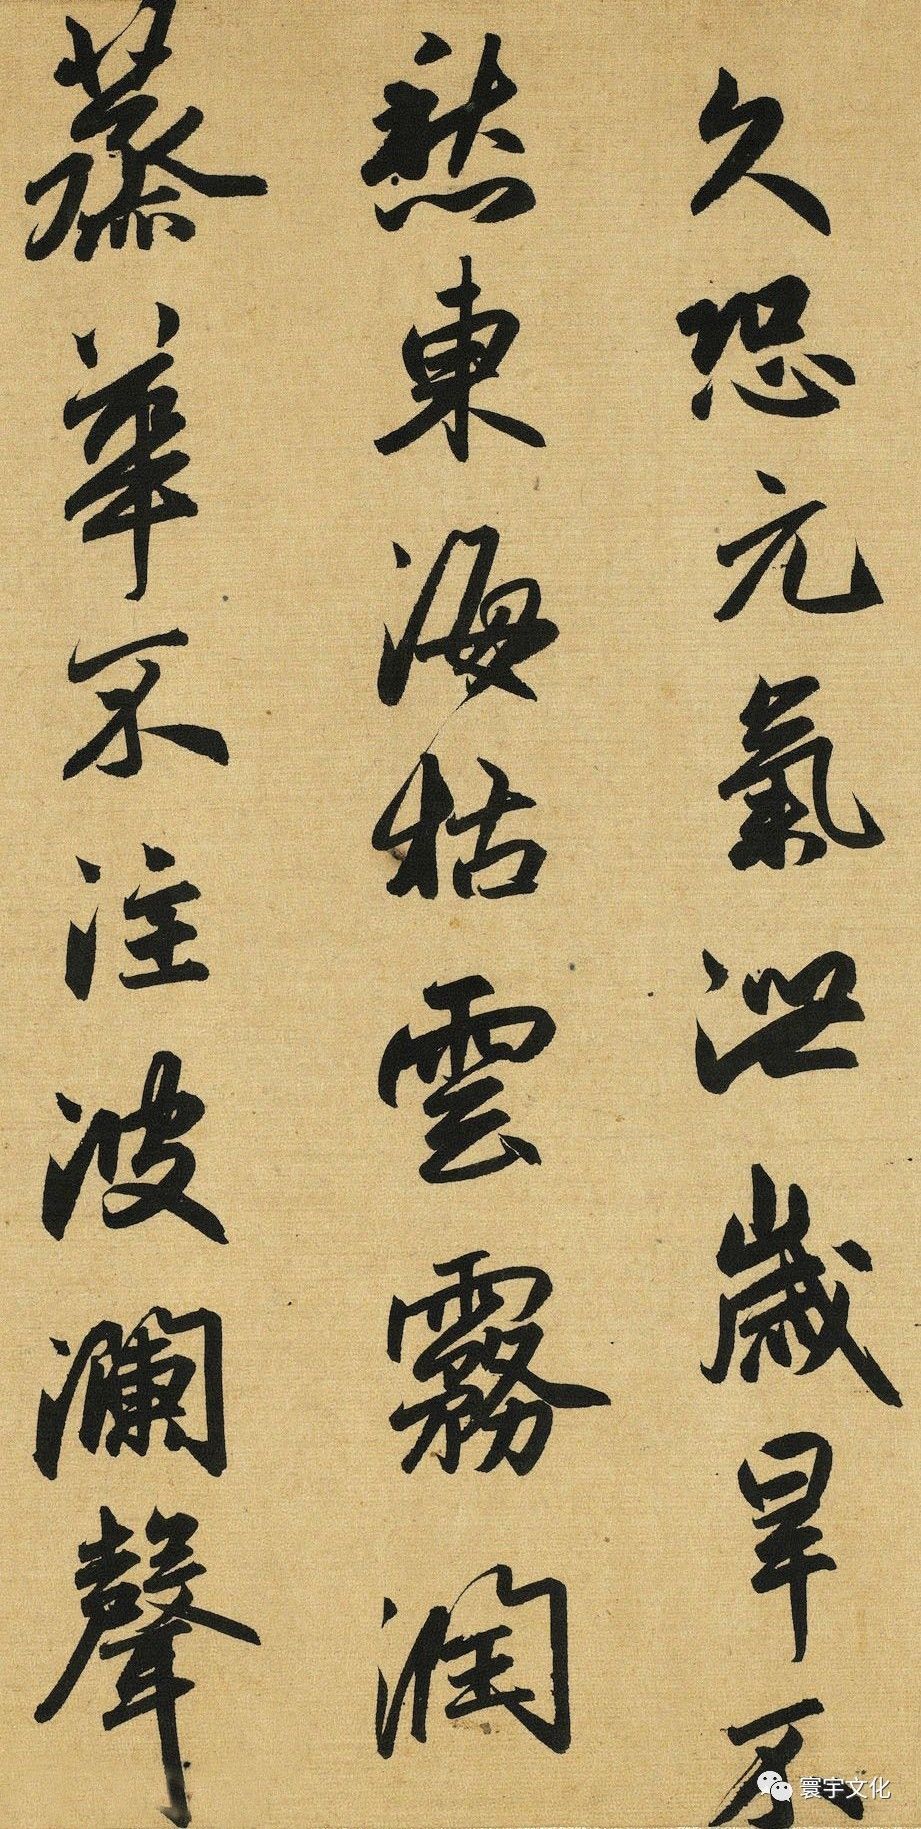 久恐元氣泄歲旱不
愁東海枯雲霧潤
蒸華不注波瀾聲
寰宇文化